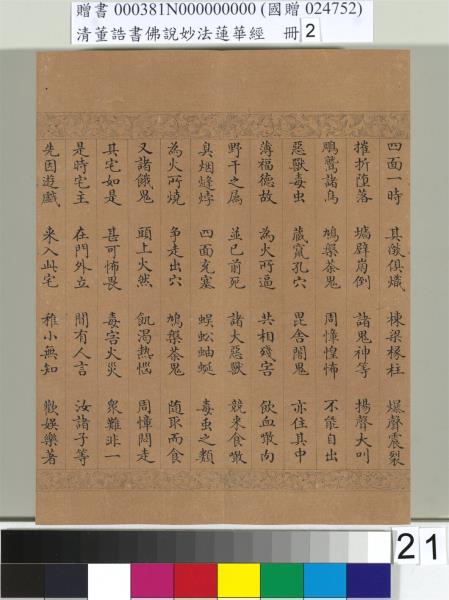 贈書 000381N000000000 (國贈 024752)
清董誥書佛說妙法蓮華經 冊 2
四面一時 其燄俱熾 棟梁椽柱 爆聲震裂
摧折墮落 墻壁崩倒 諸鬼神等 揚聲大叫
鵰鷲諸鳥 鳩槃荼鬼 周慞惶怖 不能自出
惡獸毒虫 藏竄孔穴 毘舍闍鬼 亦住其中
薄福德故 為火所逼 共相殘害 飲血噉肉
野干之屬 並已前死 諸大惡獸 競來食噉
臭烟熢㶿 四面充塞 蜈蚣蚰蜒 毒虫之類
為火所燒 爭走出穴 鳩槃荼鬼 隨取而食
又諸餓鬼 頭上火然 飢渴熱惱 周慞悶走
其宅如是 甚可怖畏 毒害火災 眾難非一
是時宅主 在門外立 聞有人言 汝諸子等
先因遊戲 來入此宅 稚小無知 歡娛樂著
21